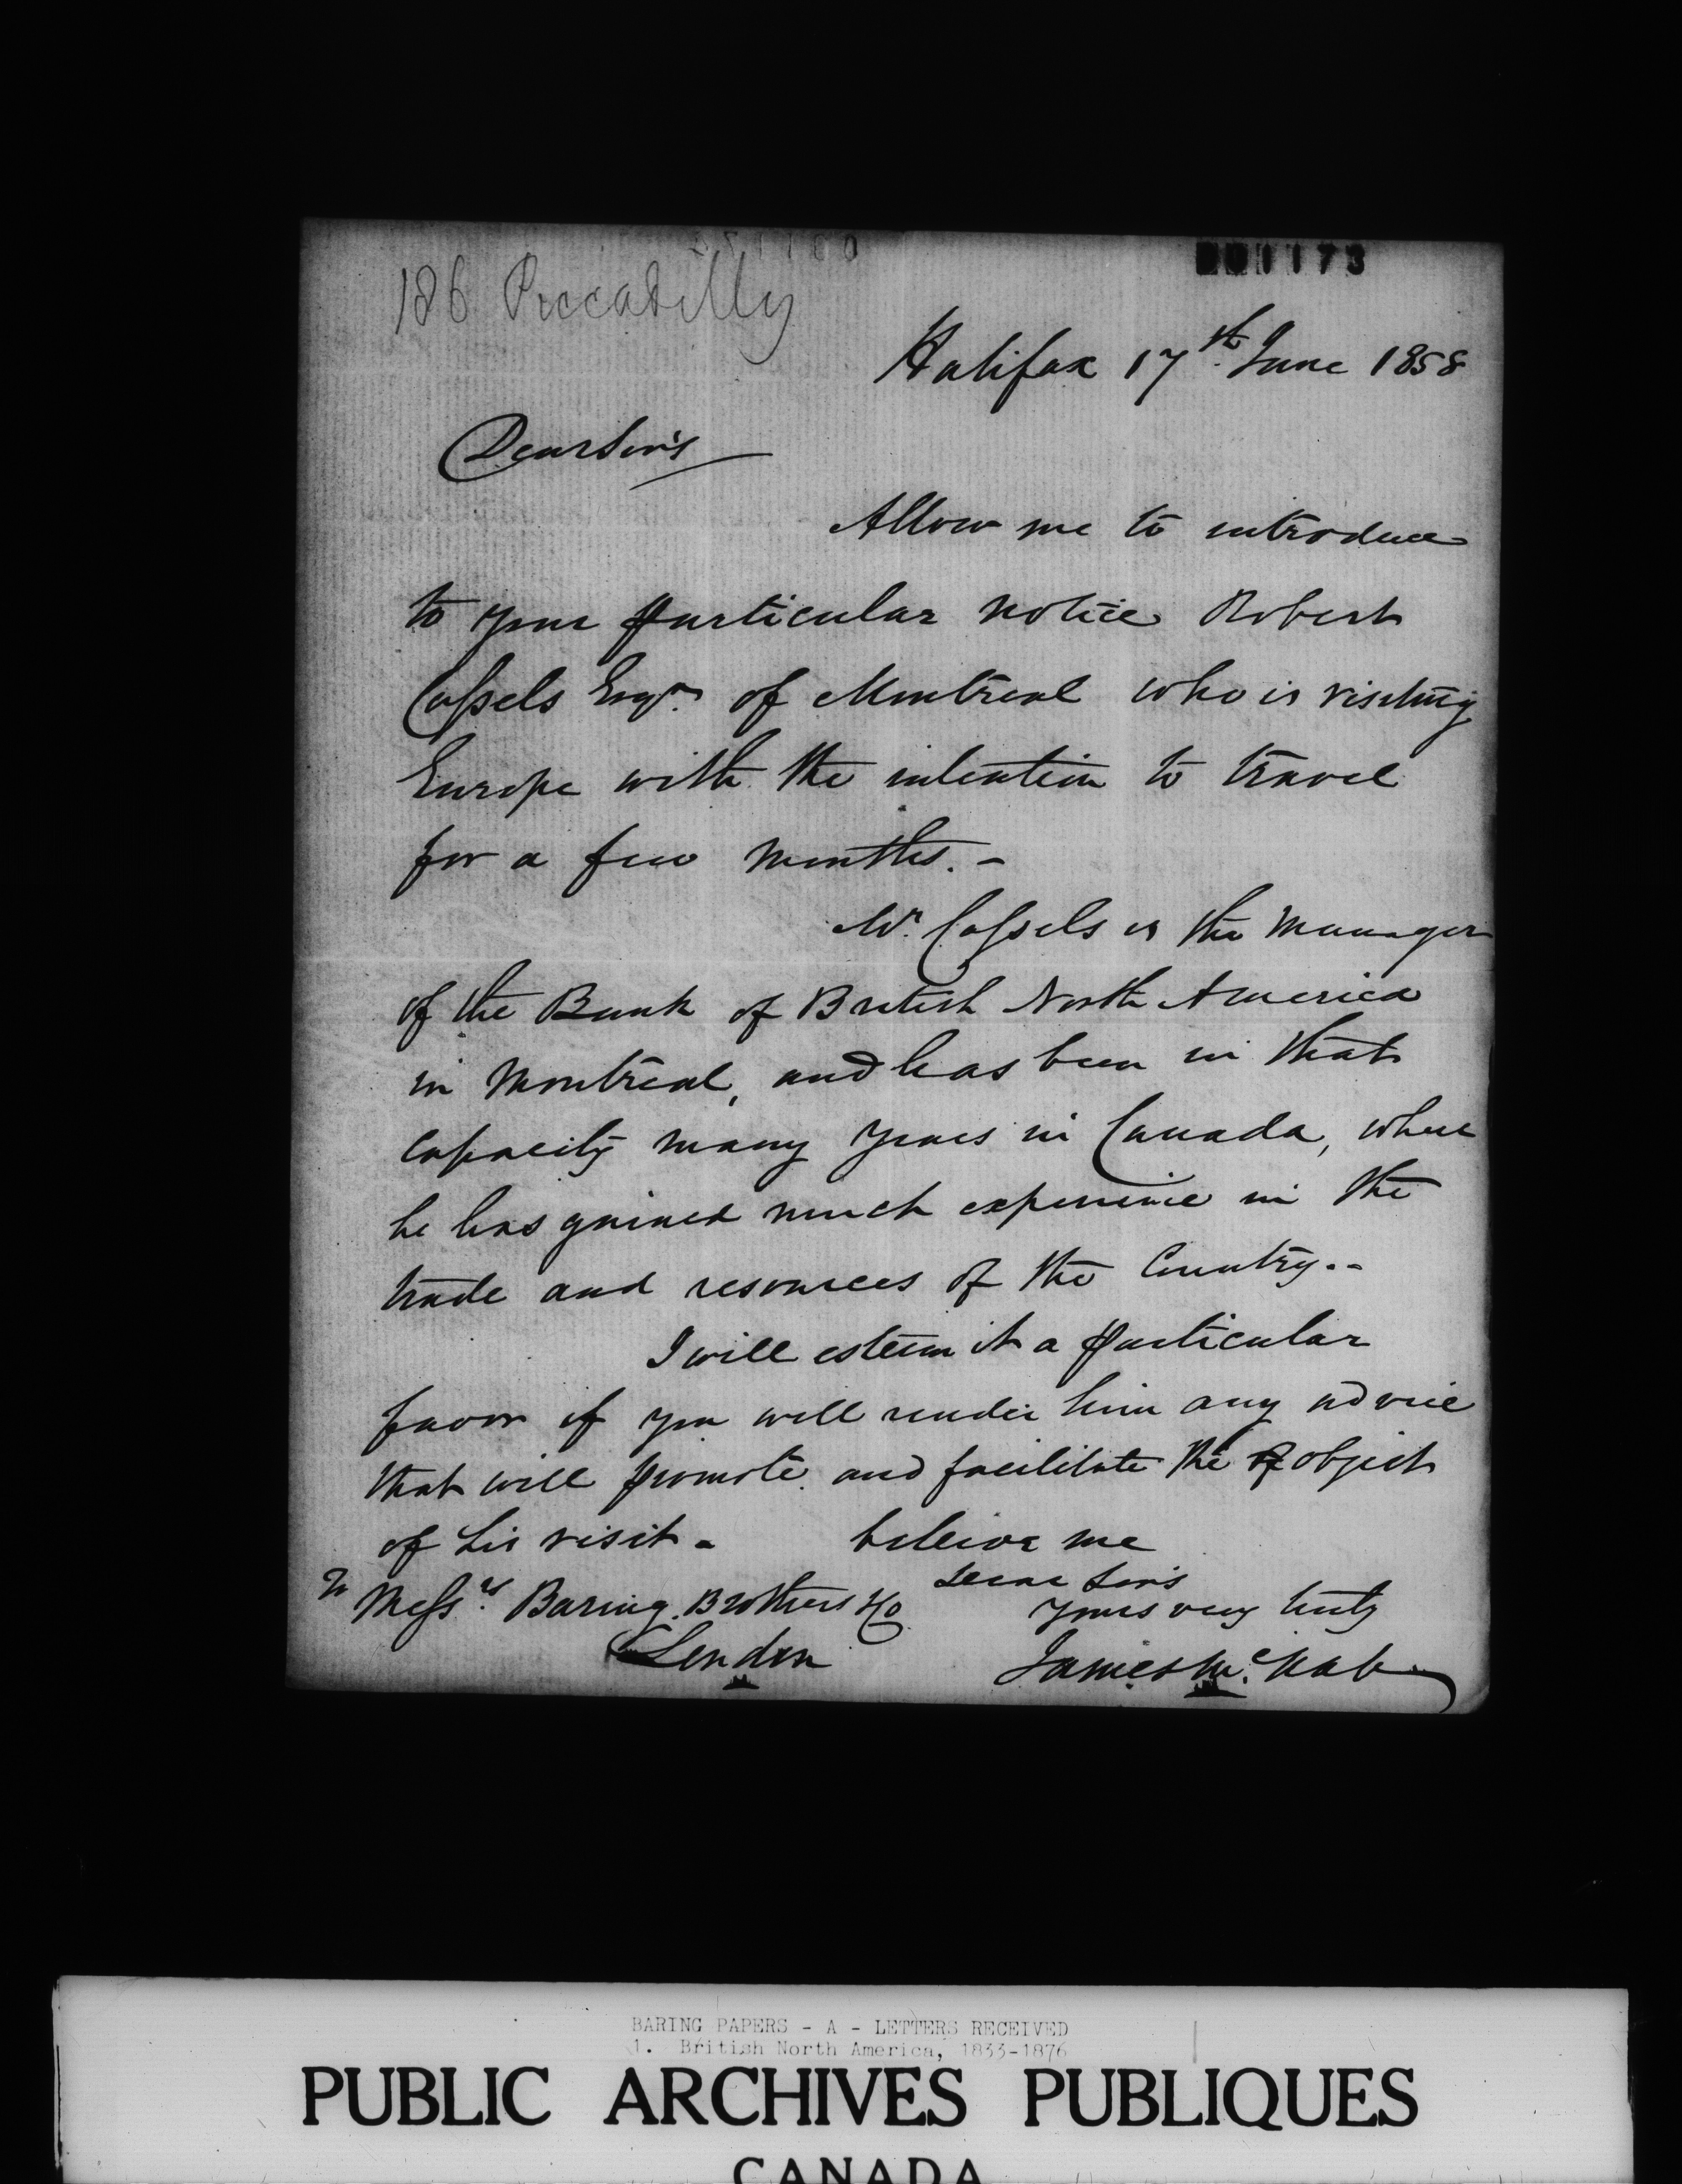 001173
186 Piccadilly
Halifax 17th June 1858
Dear Sirs
Allow me to introduce
to your particular notice Robert
Cassels Esqr. of Montreal who is visiting
Europe with the intention to travel
for a few months. -
Mr. Cassels is the Manager
of the Bank of British North America
in Montreal, and has been in that
capacity many years in Canada, where
he has gained much experience in the
trade and resources of the Country. -
I will esteem it a particular
favor if you will render him any advice
that will promote and facilitate the object
of his visit -
beleive me
Dear Sirs
To Messrs. Baring Brothers & Co
Yours very truly
London
James McNab
BARING PAPERS - A - LETTERS RECEIVED
1. British North America, 1833-1876
PUBLIC ARCHIVES PUBLIQUES
CANADA